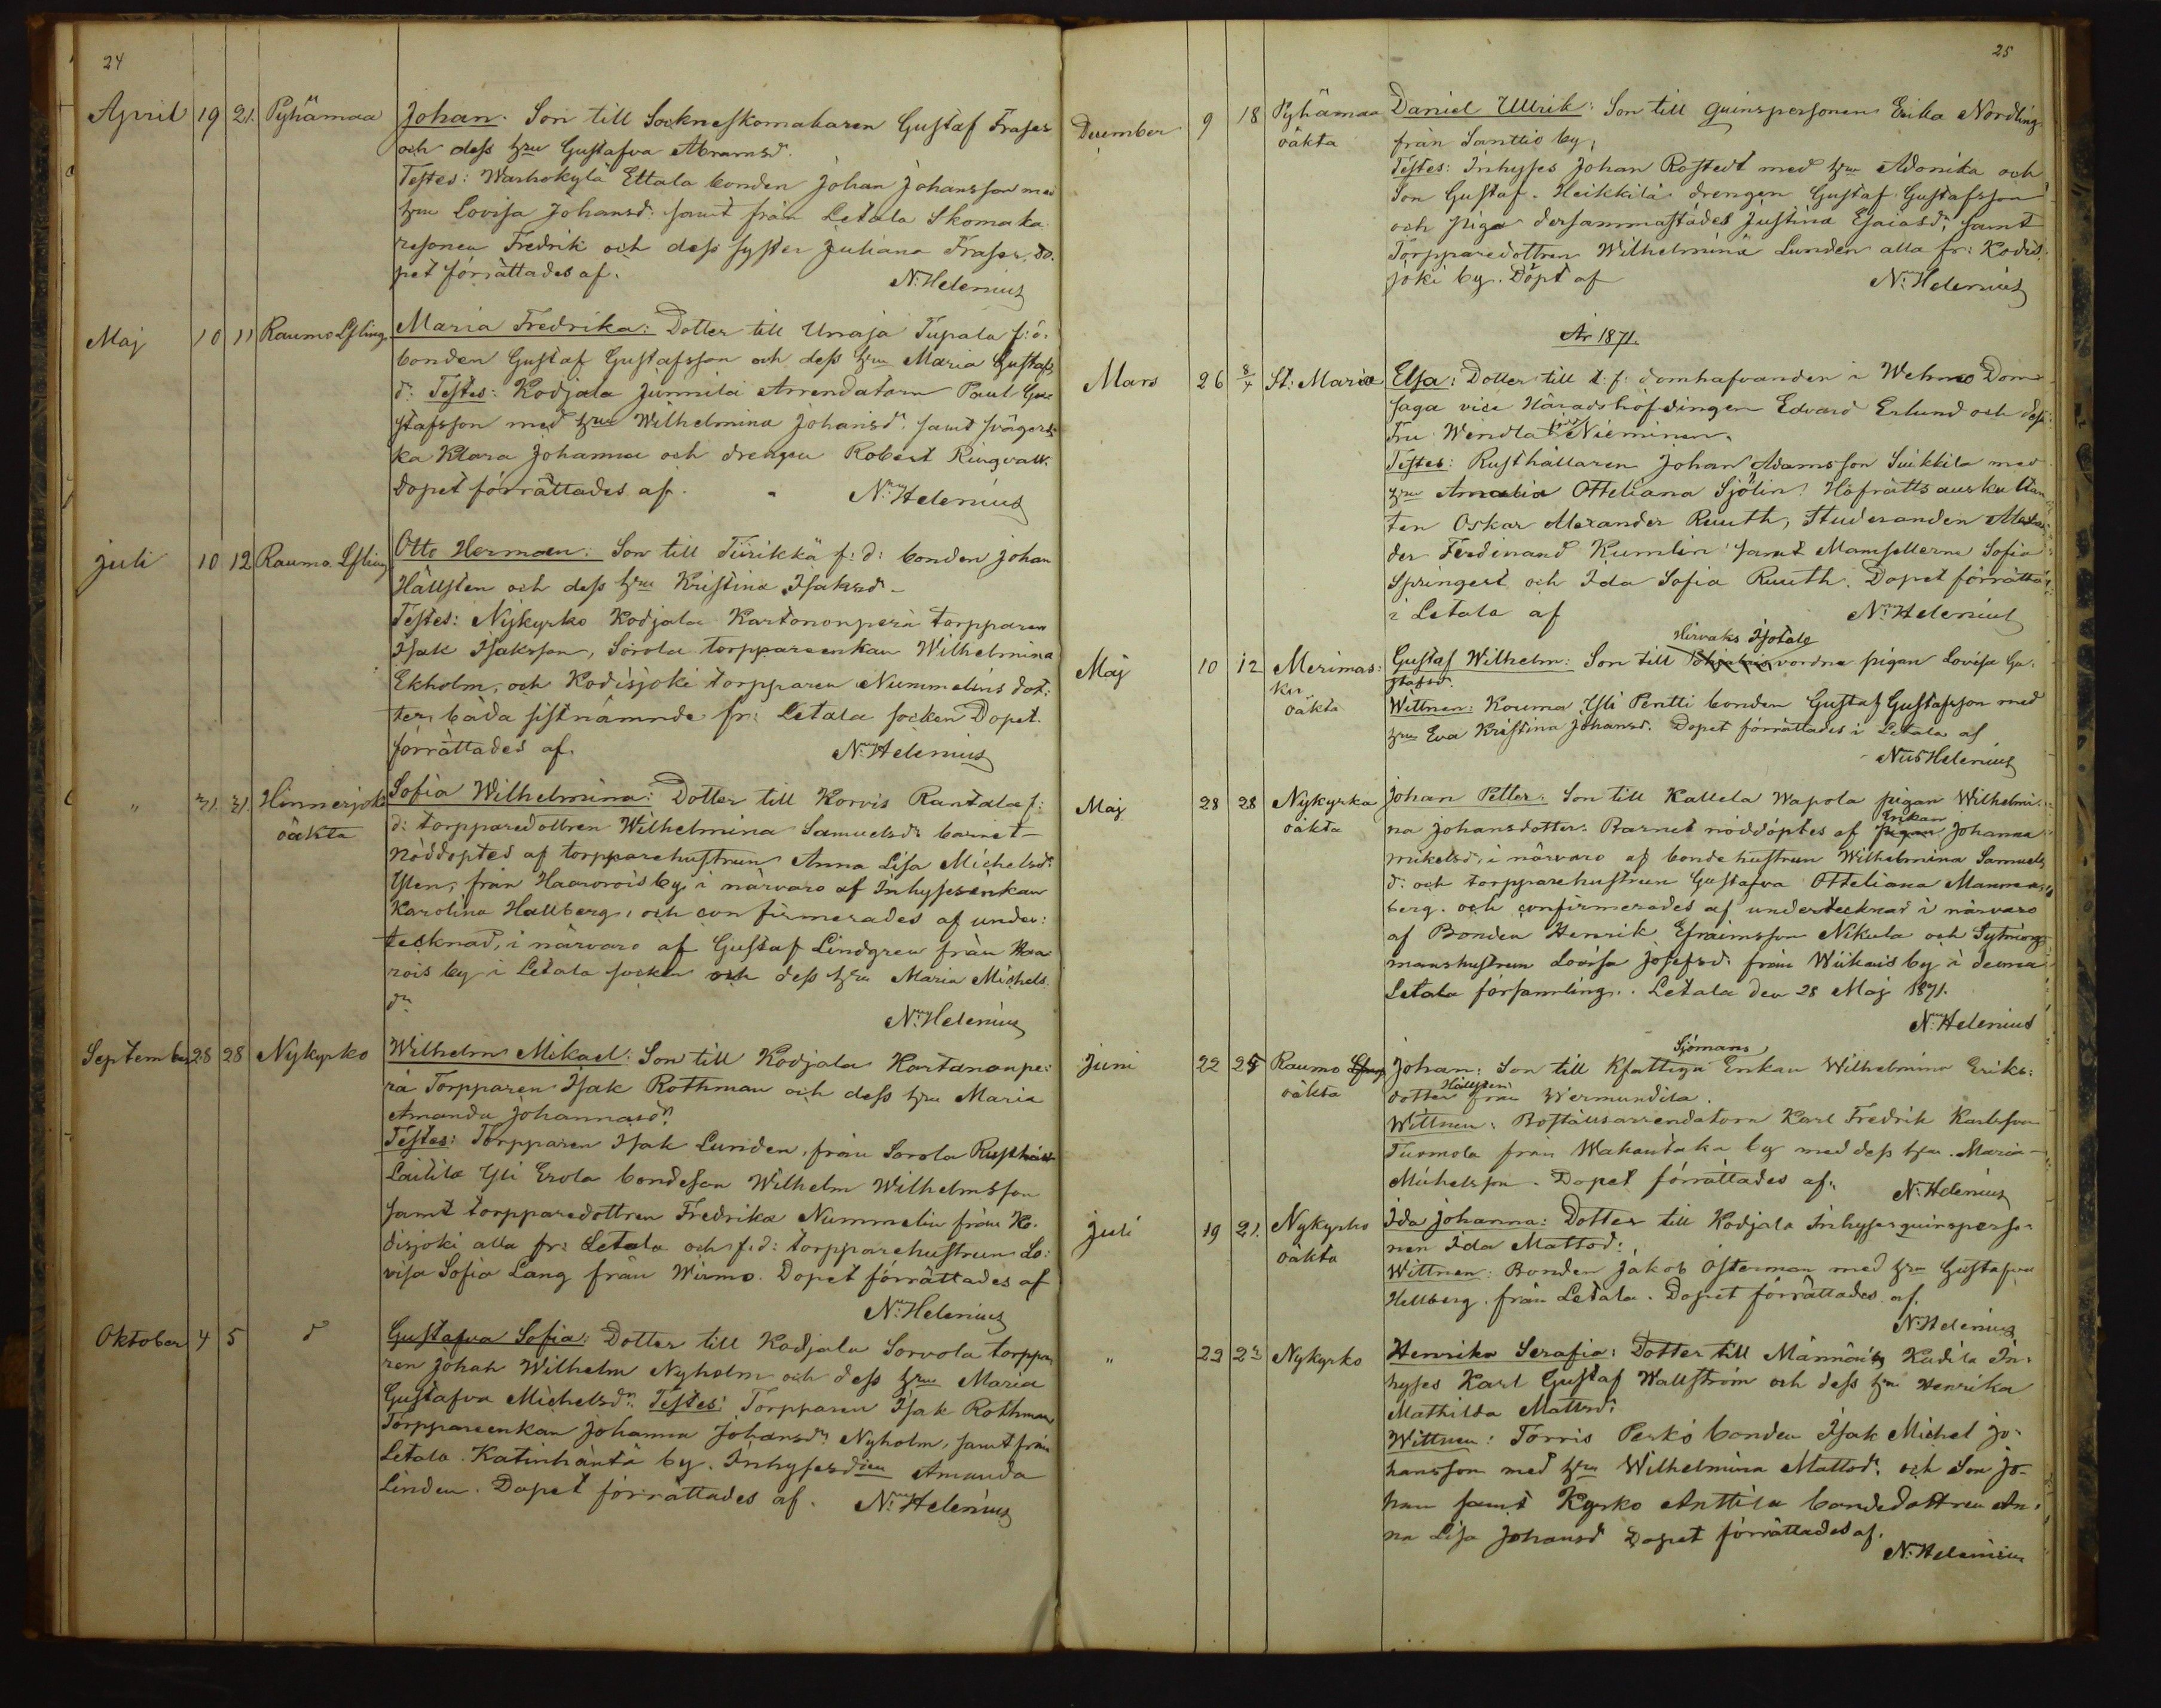 24
April 19 21. Pyhämaa Johan. Son till Sockneskomakaren Gustaf Fraser
och dess hru Gustafva Abramsd.
Testes: Warhokylä Ettala bonden Johan Johansson med
hru Lovisa Johansd: samt från Letala Skomaka
resonen Fredrik och dess syster Juliana Fraser. Do.
pet förrättades af.
N: Helenius
Maj 10 11 Raumo Lfling. Maria Fredrika: Dotter till Unaja Tupala f: d.
bonden Gustaf Gustafsson och dess hru Maria Gustafs
d: Testes: Kodjala Junnila Arrendatorn Paul Gu
stafsson med hru Wilhelmina Johansd: samt svägers
ka Klara Johanna och drengen Robert Ringvall.
Dopet förrättades af.
N: Helenius
Juli 10 12 Raumo. Lfling Otto Herman: Son till Tiirikkä f: d: bonden Johan
Hällsten och dess hru Kristina Isaksd -
Testes: Nykyrko Kodjala Kartononperä torpparen
Isak Isaksson, Sorola torppareenkan Wilhelmina
Ekholm, och Kodisjoki torpparen Nummelins dot:
ter, båda sistnämnde fr: Letala socken Dopet.
förrättades af.
N: Helenius
" 31. 31. Hinnerjoki Sofia Wilhelmina: Dotter till Korvis Rantala f:
oäkta d: torpparedottren Wilhelmina Samuelsd: barnet
Nöddoptes af torpparehustrun Anna Lisa Michelsd:
Ylen, från Haaroroisby, i närvaro af Inhysesenkan
Karolina Hallberg, och confirmerades af under:
tecknad, i närvaro af Gustaf Lindgren från Haa
rois by i Letala socken och dess hru Maria Michels
dr
N: Helenius
September 28 28 Nykyrko Wilhelm Mikael: Son till Kodjala Hartanonpe:
rä Torpparen Isak Rothman och dess hru Maria
Amanda Johannasd:
Testes: Torpparen Isak Lunden, från Sorola Rusthåll
Laitila Yli Erola bondeson Wilhelm Wilhelmsson
samt torpparedottren Fredrika Nummelin från Ko.
disjoki alla fr: Letala och f: d: torpparehustrun Lo:
visa Sofia Lang från Wirmo. Dopet förrättades af
N: Helenius
Oktober 4 5 d Gustafva Sofia: Dotter till Kodjala Sorvola torppa
ren Johan Wilhelm Nyholm och dess hru Maria
Gustafva Michelsd:. Testes: Torpparen Isak Rothman
Torppareenkan Johanna Johansd: Nyholm, samt från
Letala. Katinhäntä by. Inhyses Amanda
Linden. Dopet förrättades af. N: Helenius
25
December 9 18 Pyhämaa Daniel Ullrik: Son till quinspersonen Erika Nordling
oäkta från Santtio by,
Testes: Inhyses Johan Rostedt med hru Adonika och
Son Gustaf. Heikkilä drengen Gustaf Gustafsson
och piga dersammastädes Justina Esaiasd: samt
Torpparedottren Wilhelmina Lunden alla fr: Kodis
joki by. Döpt af
N: Helenius
År 1871.
Mars 26 8/4 St: Maria Elsa: Dotter till t: f: domhafvanden i Wehmo Dom
saga vice Häradshöfdingen Edvard Erlund och dess
Fru Wendla Nieminen.
Testes: Rusthållaren Johan Adamsson Suikkila med
hru Amalia Otteliana Sjölin! Hofrätts auskultan
ten Oskar Alexander Ruuth, Studeranden Alexan
der Ferdinand Kumlin samt Mamsellerna Sofia
Springert och Ida Sofia Ruuth. Dopet förrätta:
i Letala af
N: Helenius
Hirvaks Isotalo
Maj 10 12 Merimas: Gustaf Wilhelm: Son till vordna pigan Lovisa Gu.
ku stafsd.
oäkta Wittnen: Kouma Yli Pentti bonden Gustaf Gustafsson med
hru Eva Kristina Johansd. Dopet förrättades i Letala af
Nils Helenius
Maj 28 28 Nykyrka Johan Petter: Son till Kallela Wapola pigan Wilhelmi
oäkta na Johansdotter: Barnet nöddöptes af pigan Enkan Johanna
Mikelsd, i närvaro af bondehustrun Wilhelmina Samuels
d: och torpparehustrun Gustafva Otteliana Manner
berg. och confirmerades af undertecknad i närvaro
af Bonden Henrik Efraimsson Nikula och Sytnings
manshustrun Lovisa Josefsd: från Wiikais by i denna
Letala församling. Letala den 28 Maj 1871.
N: Helenius
Sjömans
Juni 22 25 Raumo Johan: Son till Kfattiga Enkan Wilhelmina Eriks:
oäkta dotter Hällsten från Wermundila.
Wittnen: Boställsarrendatorn Karl Fredrik Karlsson
Tuomola från Wahantaka by med dess hru. Maria
Michelsson. Dopet förrättades af.
N: Helenius
Juli 19 21. Nykyrko Ida Johanna: Dotter till Kodjala Inhyses quinsperso-
oäkta nen Ida Mattsd:
Wittnen: Bonden Jakob Österman med hru Gustafva
Hellberg. från Letala. Dopet förrättades af.
N: Helenius
" 22 Nykyrko Henrika Serafia: Dotter till Männäis Kudila In:
hyses Karl Gustaf Wallström och dess hru Henrika
Mathilda Mattsd:
Wittnen: Torris Perko bonden Isak Michel Jo:
hansson med hru Wilhelmina Mattsd: och Son Jo-
han samt Kyrko Anttila bondedottren An:
na Lisa Johansd Dopet förrättades af.
N: Helenius